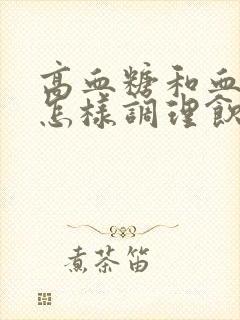 高血糖和血
怎樣調理飲
煮茶笛